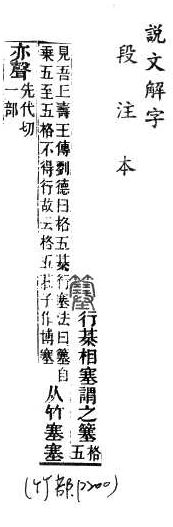 說文解字
段注本
簺 行棊相塞謂之簺 格五
見吾丘壽王傳劉德曰格五棊行塞法曰簺自
乘五至五格不得行故云格五莊子作博塞
从竹塞塞
亦聲 先代切
一部
(竹部p200)